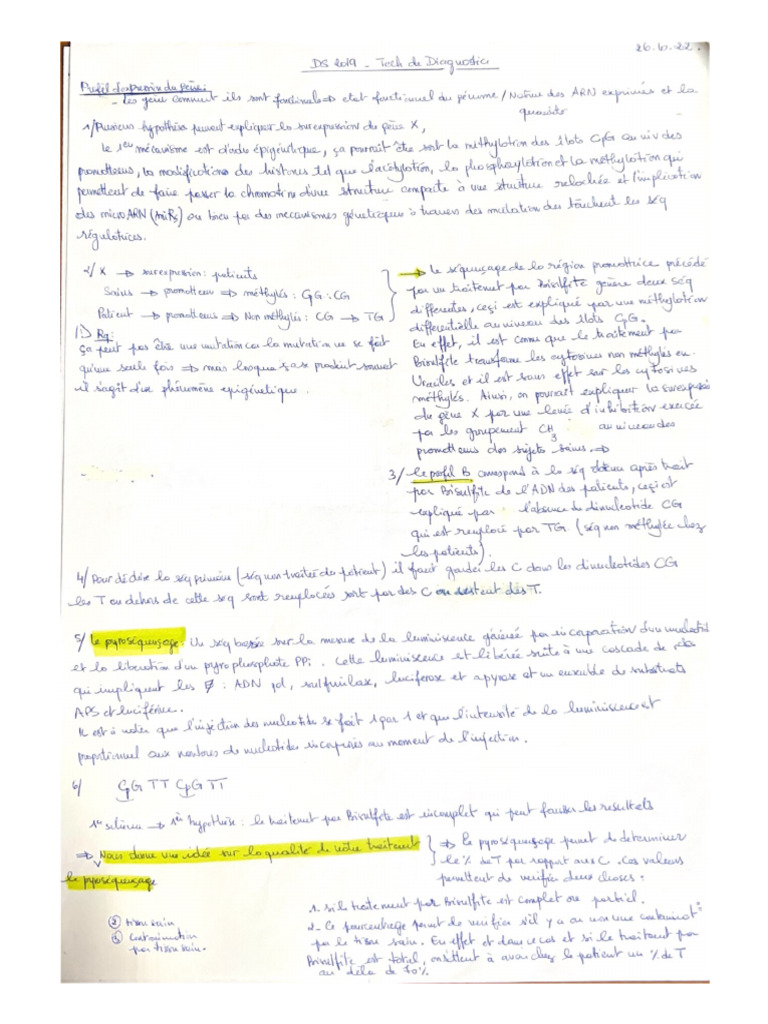 26.10.22.
DS 2019 - Tech de Diagnostic
Profil d'expression du gène:
- les gènes comment ils sont fonctionnels ⇒ état fonctionnel du génome / Nature des ARN exprimés et la
quantité
1/ Plusieurs hypothèses peuvent expliquer la surexpression du gène X,
le 1er mécanisme est d'ordre épigénétique, ça pourrait être soit la méthylation des îlots CpG au niv des
promoteurs, la modifications des histones tel que l'acétylation, la phosphorylation et la méthylation qui
permettent de faire passer la chromatine d'une structure compacte à une structure relachée et l'implication
des microARN (miRs) ou bien par des mécanismes génétiques à travers des mutation des touchent les séq
régulatrices.
2/ X → surexpression : patients
Sains → promoteur ⇒ méthylés : CG : CG
Patient → promoteurs ⇒ Non méthylés : CG → TG
Rq:
ça peut pas être une mutation car la mutation ne se fait
qu'une seule fois ⇒ mais lorsque ça se produit souvent
il s'agit d'un phénomène epigénétique.
→ le séquençage de la région promotrice précédé
par un traitement par Bisulfite génère deux séq
différentes, ceci est expliqué par une méthylation
différentielle au niveau des îlots CpG.
En effet, il est connu que le traitement par
Bisulfite transforme les cytosines non méthylés en
Uraciles et il est sans effet sur les cytosines
méthylés. Ainsi, on pourrait expliquer la surexpression
du gène X par une levée d'inhibition exercée
par les groupement CH3 au niveau des
promotteurs des sujets sains. ⇒
3/ le profil B correspond à la séq obtenu après trait
par Bisulfite de l'ADN des patients, ceci est
expliqué par l'absence du dinucléotide CG
qui est remplacé par TG (séq non méthylée chez
les patients).
4/ Pour déduire la séq primaire (séq non traitée du patient) il faut garder les C dans les dinucléotides CG
les T en dehors de cette séq sont remplacées soit par des C ou restent des T.
5/ Le pyroséquençage: Un séq basée sur la mesure de la luminiscence générée par incorporation d'un nucléotid
et la libération d'un pyrophosphate PPi. Cette luminiscence est libérée suite à une cascade de
qui impliquent les : ADN pol, sulfurilase, luciferase et apyrase et un ensemble de substrats
APS et luciférine.
Il est à noter que l'injection des nucléotide se fait 1 par 1 et que l'intensité de la luminiscence est
proportionnel aux nombres de nucléotide incorporés au moment de l'injection.
6/ CpG TT CpG TT
1er schéma → 1ère hypothèse : le traitement par Bisulfite est incomplet qui peut fausser les resultats
⇒ Nous donne une idée sur la qualité de notre traitement
le pyroséquençage
② tissu sain
contamination
par tissu sain.
⇒ le pyroséquençage permet de déterminer
le % de T par rapport aux C. Ces valeurs
permettent de vérifier deux choses :
1- si le traitement par Bisulfite est complet ou partiel.
2- Ce pourcentage permet de vérifier s'il y a ou non une contaminat°
par le tissu sain. En effet et dans ce cas et si le traitement par
Bisulfite est total, on s'attend à avoir chez le patient un % de T
au delà de 70%